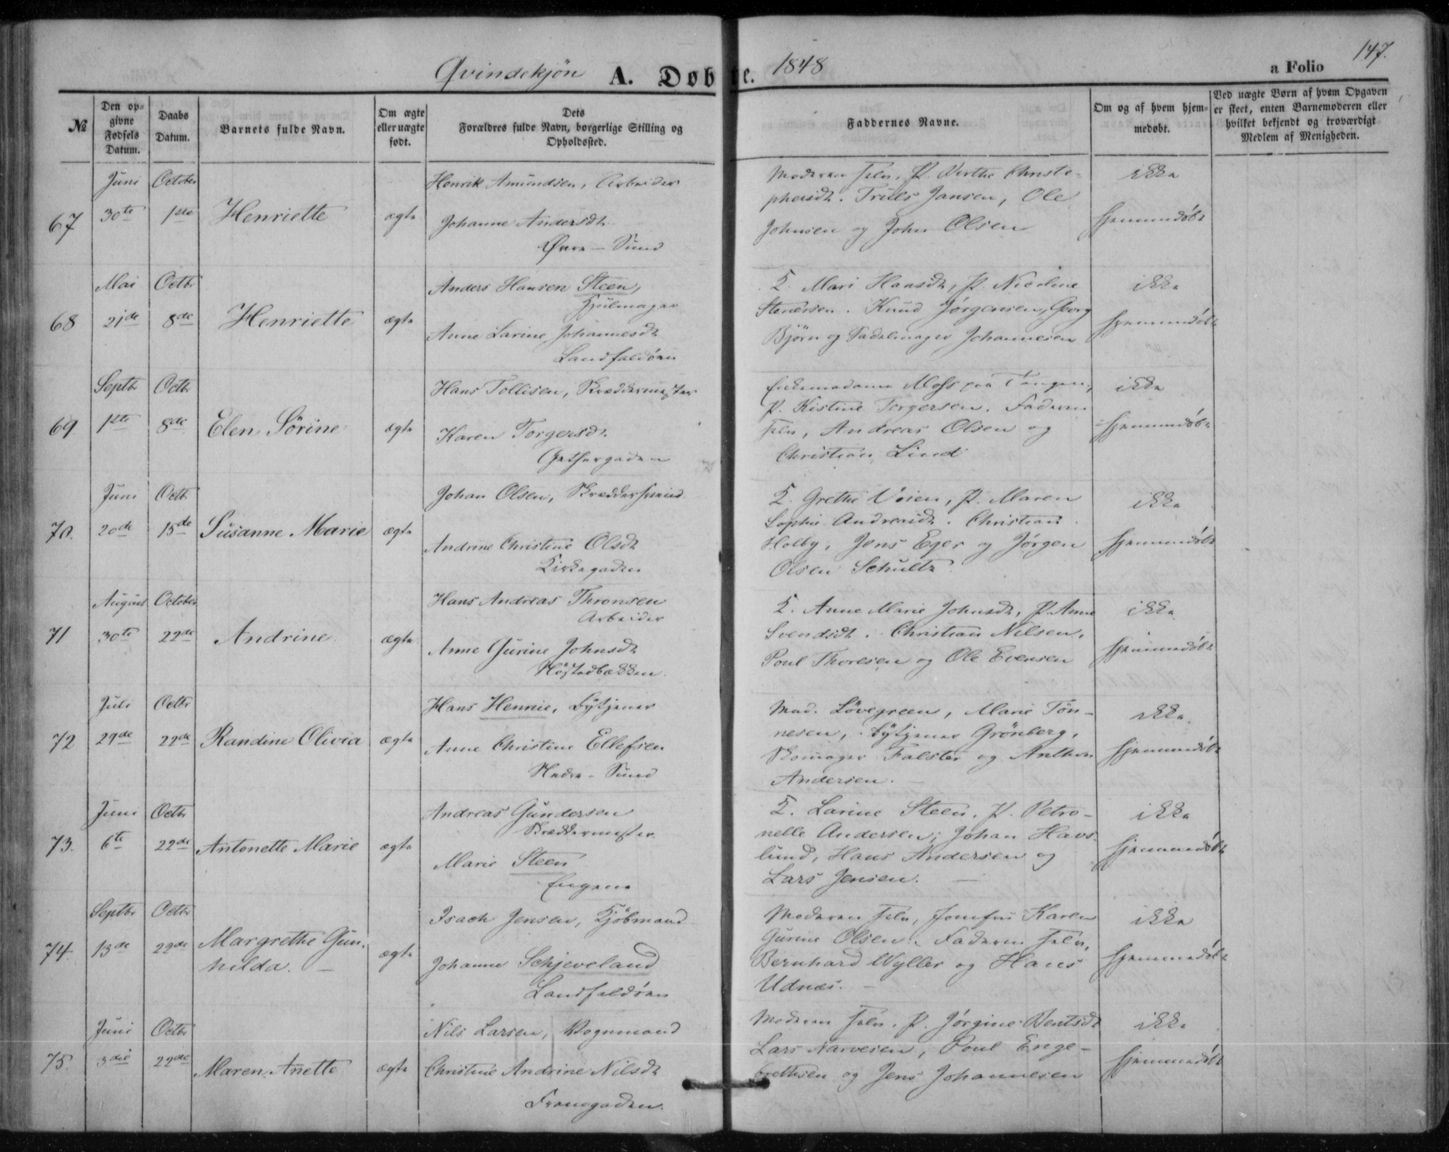 147.
Qvindekjön A. Døbte. 1848 a Folio
No
Den opgivne Fødsels Datum.
Daabs Datum.
Barnets fulde Navn.
Om ægte eller uægte født.
Dets Forældres fulde Navn, borgerlige Stilling og Opholdssted.
Faddernes Navne.
Om og af hvem hjemmedøbt.
Ved uægte Børn af hvem Opgaven er skeet, enten Barnemoderen eller hvilket bekjendt og troværdigt Medlem af Menigheden.
67
Juni 30te
October 1ste
Henriette
ægte
Henrik Amundsen, Arbeider
Johanne Andersdt.
Øvre-Sund
Moderen selv, P. Berthe Christo-
phersdt. Truls Jansen, Ole
Johnsen og John Olsen
ikke
hjemmedøbt
68
Mai 21de
Octb. 8de
Henriette
ægte
Anders Hansen Steen,
Hjulmager
Anne Larine Johannesdt.
Landfaldøen
K. Mari Hansdt, P. Nicoline
Stenersen. Knud Jørgensen, Georg
Bjørn og Sadelmager Johannesen
ikke
hjemmedøbt
69
Septbr 1ste
Octb. 8de
Elen Sörine
ægte
Hans Tollefsen, Skræddermester
Karen Torgersdt.
P. Kistine Torgersen. Faderen
selv, Andreas Olsen og
Christian Lind
ikke
hjemmedøbt
70.
Juni 20de
Octb. 15de
Susanne Marie
ægte
Johan Olsen, Skræddersvend
Andrine Christine Olsdt
Kirkegaden
K. Grethe Voien, P. Maren
Sophie Andreasdt. Christian
Holby, Jens Eger og Jørgen
Olsen Schultz
ikke
hjemmedøbt
71
August 30te
October 22de
Andrine
ægte
Hans Andreas Thronsen
Arbeider
Anne Gurine Johnsdt
K. Anne Marie Johnsdt, P. Anne
Svendsdt. Christian Nilsen,
Poul Thoresen og Ole Evensen
ikke
hjemmedøbt
72
Juli 29de
Octbr 22de
Randine Olivia
ægte
Hans Henrie, Bytjener
Anne Christine Ellefsen
Nedre-Sund
Mad. Løvegreen, Marie Tön-
nesen, Bytjener Grönberg,
Skomager Falster og Anthon
Andersen.
ikke
hjemmedøbt
73.
Juni 6te
Octbr 22de
Antonette Marie
ægte
Andreas Gundersen
Skræddermester
Marie Steen
Engene
K. Larine Steen, P. Petro-
nelle Andersen, Johan Havs-
lund, Hans Andersen og
Lars Jensen.
ikke
hjemmedøbt
74.
Septbr 13de
Octbr 29de
Margrethe Gun-
hilda.
ægte
Isach Jensen, Kjöbmand
Johanne Schjeveland
Landfaldøen
Moderen selv, Jomfru Karen
Gurine Olsen. Faderen selv,
Bernhard Wyller og Hans
Udnæs.
ikke
hjemmedøbt
75.
Juni 3die
Octbr 22de
Maren Anette
ægte
Nils Larsen, Vognmand
Christine Andrine Nilsdt
Moderen selv, P. Jörgine Berntsdt
Lars Narvesen, Poul Enge-
brethsen og Jens Johannesen
ikke
hjemmedøbt